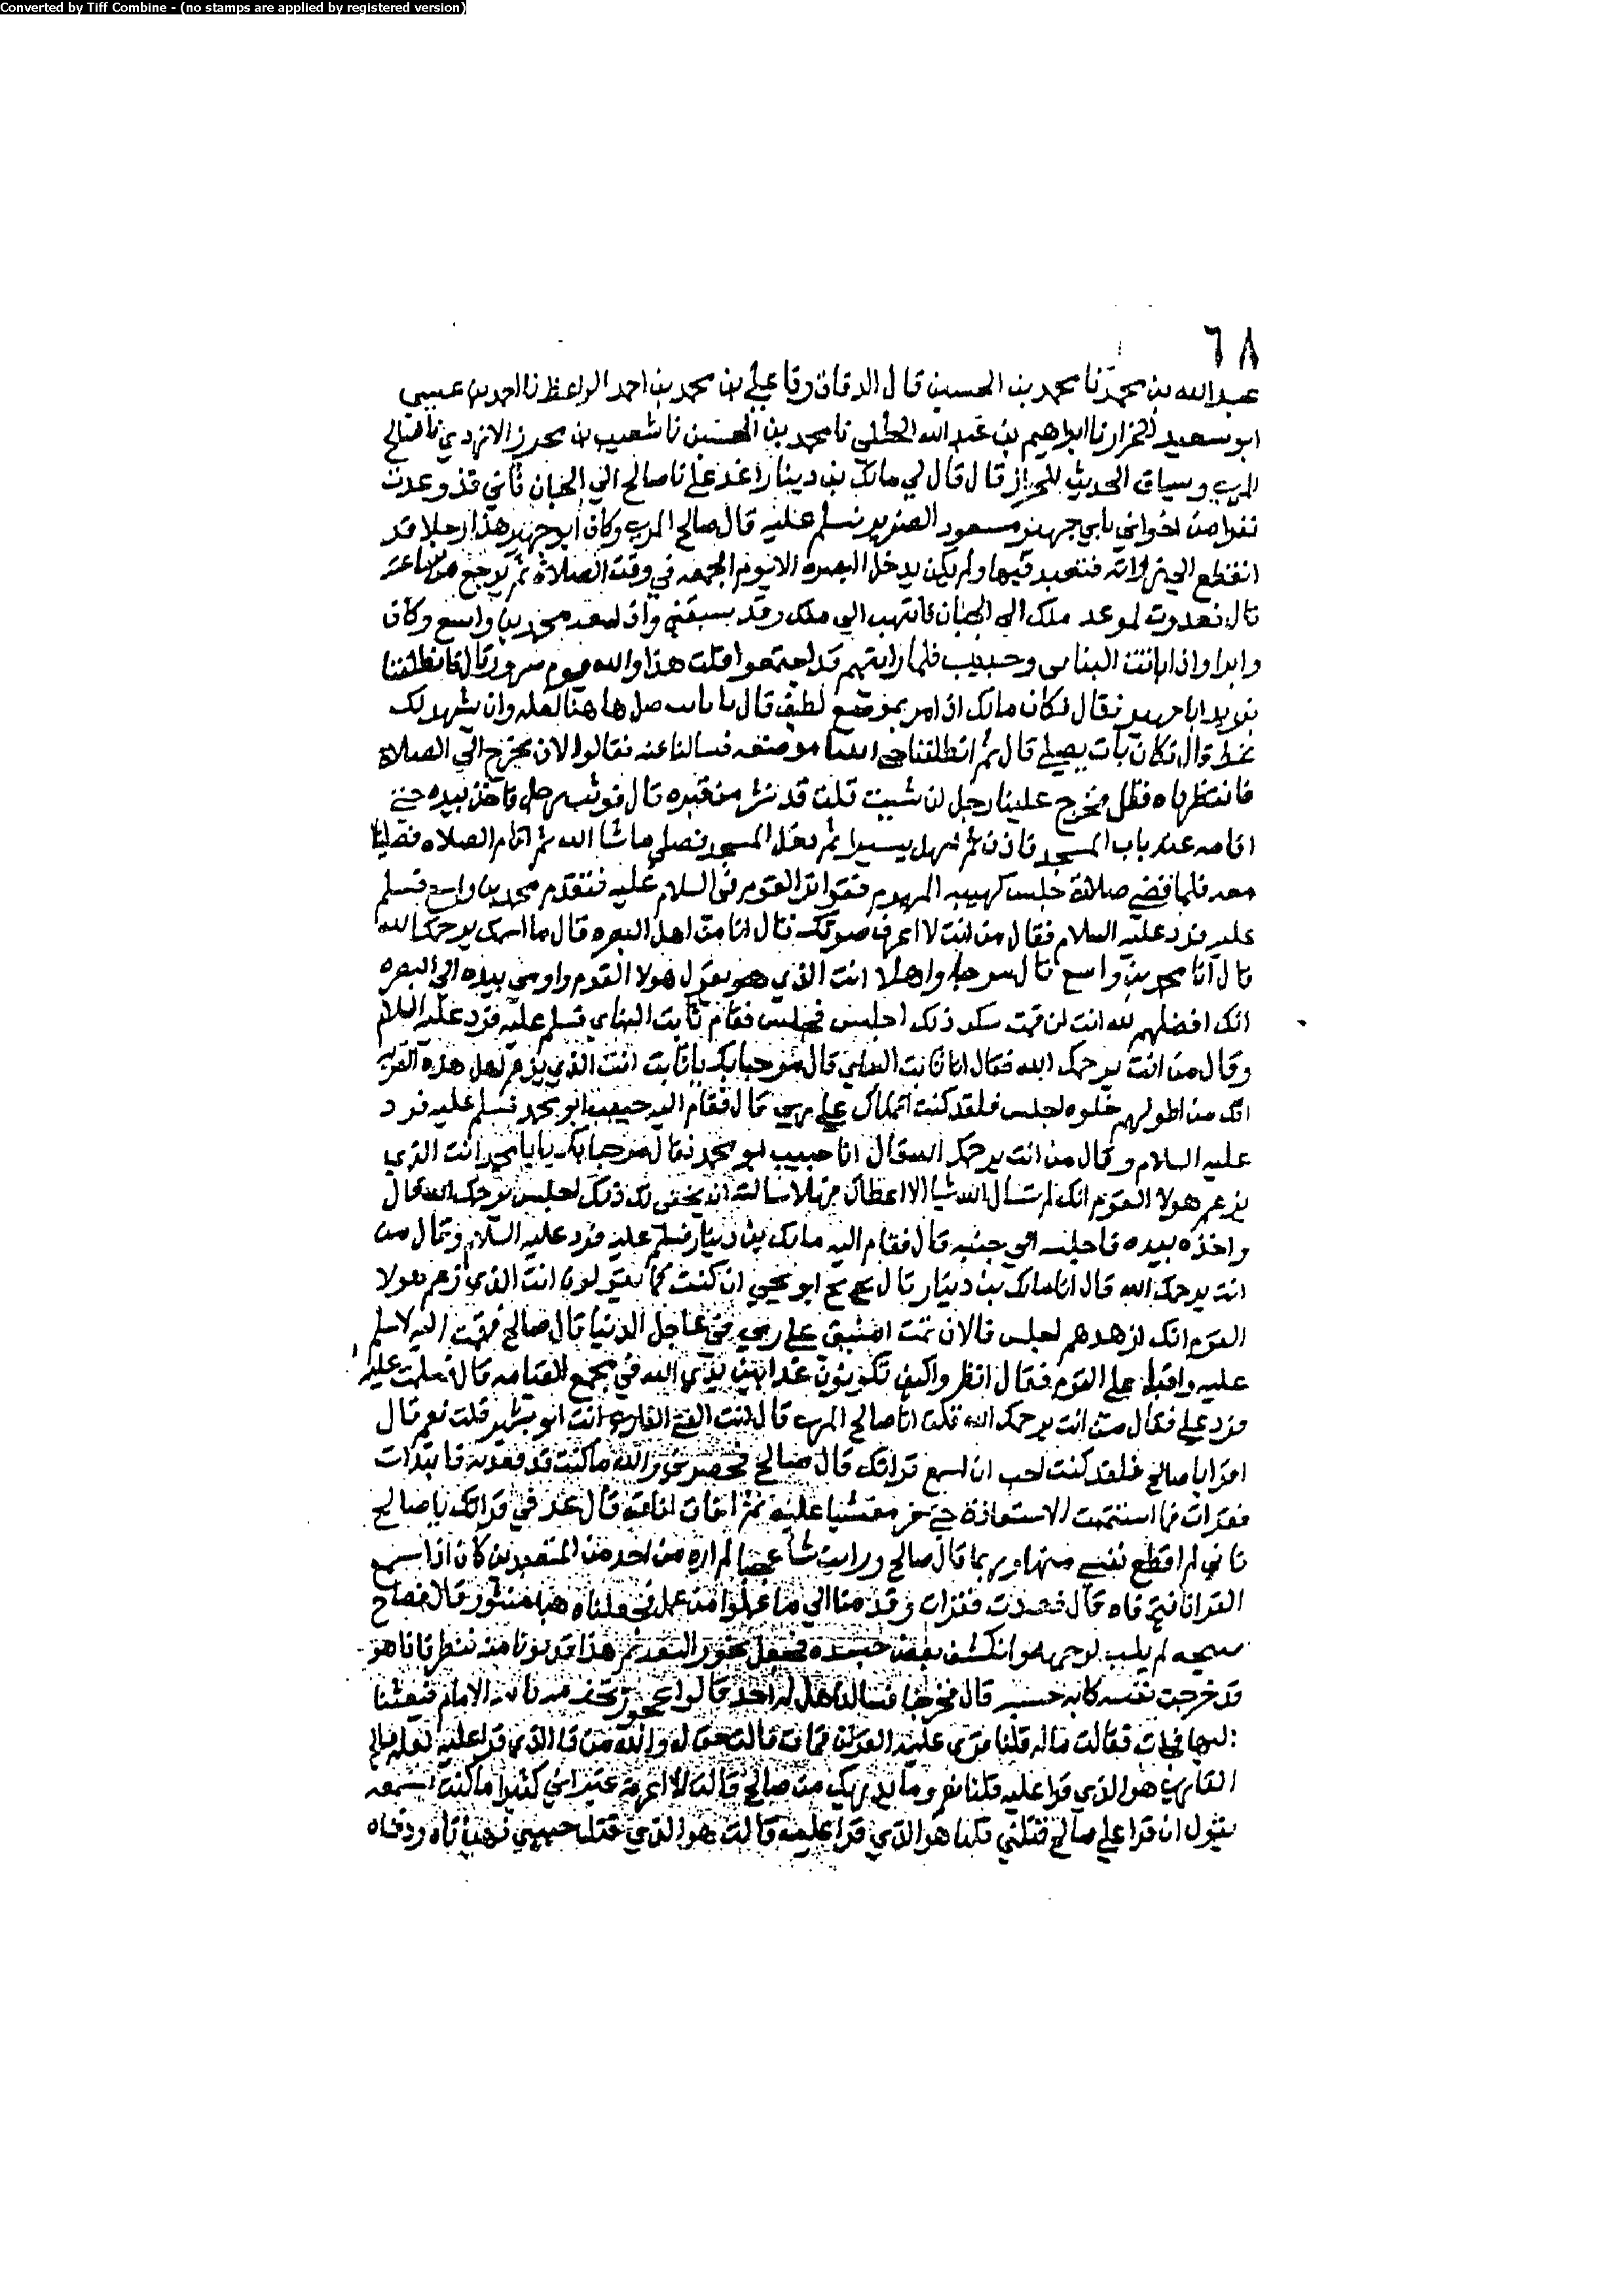 Converted by Tiff Combine - (no stamps are applied by registered version)
٦٨
عبد الله بن محمد نا محمد بن الحسين قال الدقاق ونا علي بن محمد بن احمد الواعظ نا احمد بن عيسى
ابو سعيد الخزاز نا ابراهيم بن عبد الله الختلي نا محمد بن الحسين نا شعيب بن محرز الازدي نا صالح
المري وسياق الحديث للخزاز قال قال لي مالك بن دينار اغد علي يا صالح الي الجبان فاني قد وعدت
نفرا من اخواني بابي جهير مسعود الضرير نسلم عليه قال صالح المري وكان ابو جهير هذا رجلا قد
انقطع الي زاوية فتعبد فيها ولم يكن يدخل البصرة الا يوم الجمعه في وقت الصلاة ثم يرجع من ساعته
قال فغدوت لموعد ملك الى الجبان فانتهيت الي ملك وقد سبقني واذا معه محمد بن واسع وكان
واذا ثابت البناني وحبيب فلما رايتهم قد اجتمعوا قلت هذا والله يوم سرور قال فانطلقنا
نريد ابا جهير فقال فكان مالك اذا مر بموضع لطيف قال يا ثابت صل هاهنا لعله ان يشهد لك
غدا قال فكان ثابت يصلي قال ثم انطلقنا حتى اتينا موضعه فسالنا عنه فقالوا الان يخرج الي الصلاة
فانتظرناه فظل يخرج علينا رجل ان شيت قلت قد نشر من قبره قال فوثب رجل فاخذ بيده حتى
اقامه عند باب المسجد فاذن ثم تمهل يسيرا ثم دخل المسجد فصلي ما شا الله ثم اقام الصلاه فصلينا
معه فلما قضى صلاة جلس كهيية المهموم فتواثر القوم في السلام عليه فتقدم محمد بن واسع فسلم
عليه فرد عليه السلام فقال من انت لا اعرف صوتك قال انا من اهل البصره قال ما اسمك يرحمك الله
قال انا محمد بن واسع قال مرحبا واهلا انت الذي هو يقول هولا القوم واومي بيده الى البصره
انك افضلهم لله انت لن قمت بشكر ذلك اجلس فجلس فقام ثابت البناني فسلم عليه فرد عليه السلام
وقال من انت يرحمك الله فقال انا ثابت البناني قال مرحبا بك يا ثابت انت الذي يزعم اهل هذه القرية
انك من اطولهم صلوه اجلس فلقد كنت اتمناك علي ربي قال فقام اليه حبيب ابو محمد فسلم عليه فرد
عليه السلام وقال من انت يرحمك الله فقال انا حبيب ابو محمد فقال مرحبا بك يا ابا محمد انت الذي
يزعم هولا القوم انك لم تسال الله شيا الا اعطاك فهلا سالته ان يخفي لك ذلك اجلس يرحمك الله قال
واخذه بيده فاجلسه الى جنبه قال فقام اليه مالك بن دينار فسلم عليه فرد عليه السلام وقال من
انت يرحمك الله قال انا مالك بن دينار قال بخ بخ ابو يحيى ان كنت كما يقولون انت الذي زعم هولا
القوم انك ازهدهم اجلس فالان تمت امنيتي علي ربي في عاجل الدنيا قال صالح فقمت اليه لاسلم
عليه واقبل على القوم فقال انظروا كيف تكونون غدا بين يدي الله في مجمع القيامه قال فسلمت عليه
فرد علي فقال من انت يرحمك الله قلت انا صالح المري قال انت الفتى القاري انت ابو بشر قلت نعم قال
اقرا يا صالح فلقد كنت احب ان اسمع قراتك قال صالح فحضرني والله ما كنت قد فقدته فابتدات
فقرات فما استتممت الاستعاذة حتى خر مغشيا عليه ثم افاق افاقة قال عد في قراتك يا صالح
فاني لم اقطع نفسي منها وربما قال صالح ورايت شيا عجبا لم اره من احد من المتعبدين كان اذا سمع
القران فتح فاه قال فعدت فقرات وقدمنا الي ما عملوا من عمل فجعلناه هبا منثورا قال فصاح
صيحه ثم انكب لوجهه وانكشف بعض جسده فجعل يخور الثور ثم هدا فدنونا منه ننظر فاذا هو
قد خرجت نفسه كانه خشبه قال فخرجنا فسالنا هل له احد قالوا عجوز تخدمه تاتيه الايام فبعثنا
اليها فجات فقالت ماله قلنا قرى عليه القران فمات قالت حق له والله من ذا الذي قرا عليه لعله صالح
القاري هو الذي قرا عليه قلنا نعم وما يدريك من صالح قالت لا اعرفه غير اني كثيرا ما كنت اسمعه
يقول ان قرا علي صالح قتلني قلنا هو الذي قرا عليه قالت هو الذي قتل حبيبي فهيانا ودفناه